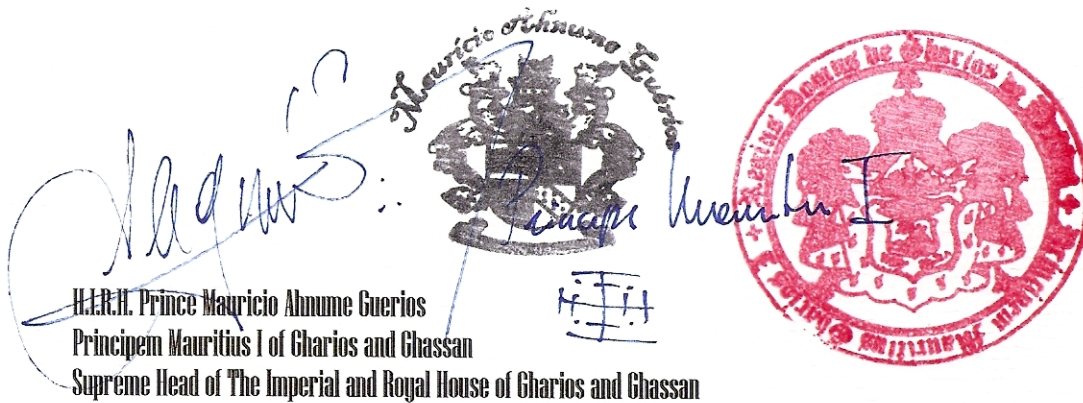 Maurício Ahnume Guérios
Regius Domus de Gharios de
Principem Mauritius Gharios I
I
H H
H.I.R.H. Prince Mauricio Ahnume Guerios
Principem Mauritius I of Gharios and Ghassan
Supreme Head of The Imperial and Royal House of Gharios and Ghassan